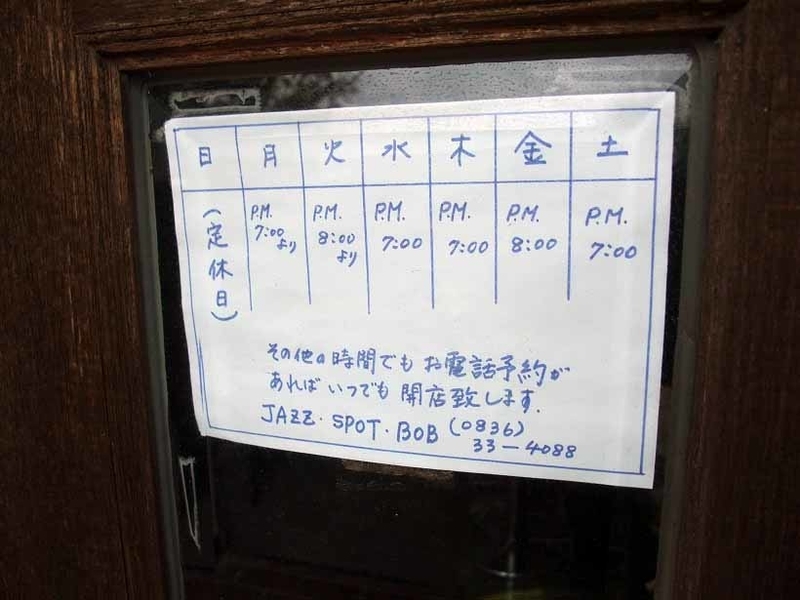 日 月 火 水 木 金 土
(定休日) P.M. P.M. P.M. P.M. P.M. P.M.
7:00 8:00 7:00 7:00 8:00 7:00
より より
その他の時間でもお電話予約が
あればいつでも開店致します.
JAZZ・SPOT・BOB (0836)
33-4088